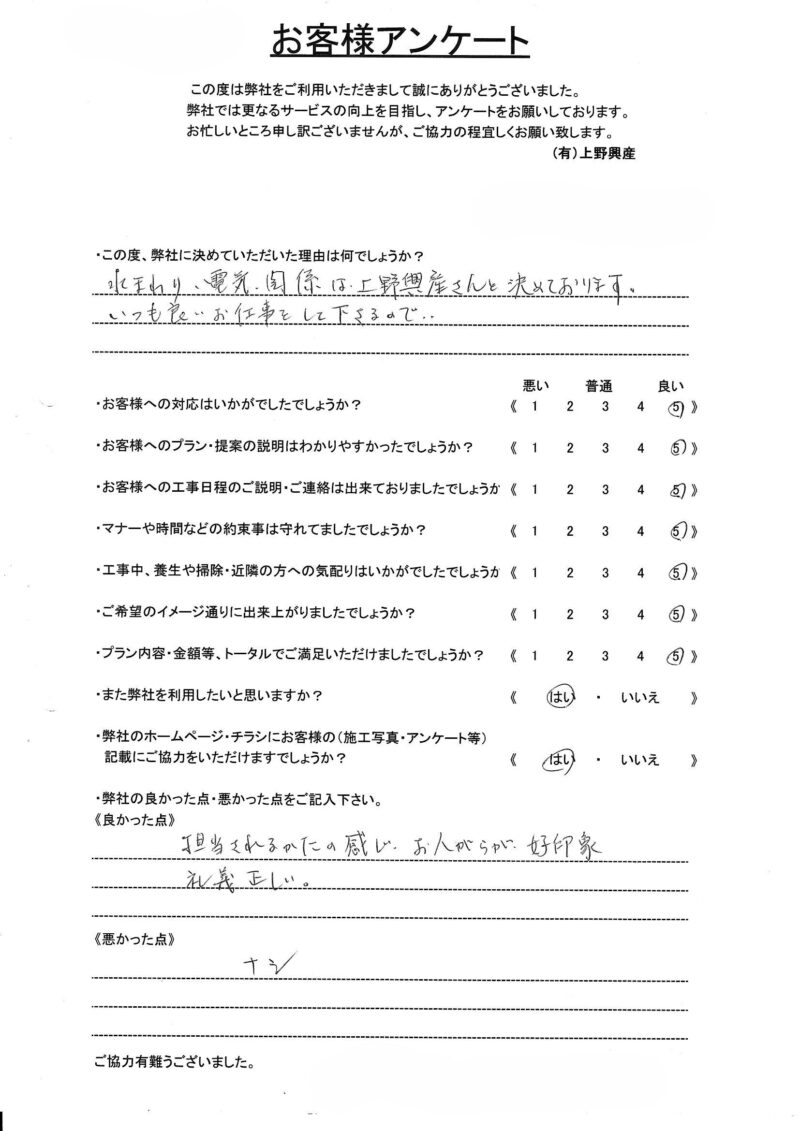 お客様アンケート
この度は弊社をご利用いただきまして誠にありがとうございました。
弊社では更なるサービスの向上を目指し、アンケートをお願いしております。
お忙しいところ申し訳ございませんが、ご協力の程宜しくお願い致します。
(有)上野興産
・この度、弊社に決めていただいた理由は何でしょうか？
水まわり、電気、関係は、上野興産さんと決めております。
いつも良いお仕事をして下さるので‥
悪い 普通 良い
・お客様への対応はいかがでしたでしょうか？ 《 1 2 3 4 5 》
・お客様へのプラン・提案の説明はわかりやすかったでしょうか？ 《 1 2 3 4 5 》
・お客様への工事日程のご説明・ご連絡は出来ておりましたでしょうか 《 1 2 3 4 5 》
・マナーや時間などの約束事は守れてましたでしょうか？ 《 1 2 3 4 5 》
・工事中、養生や掃除・近隣の方への気配りはいかがでしたでしょうか 《 1 2 3 4 5 》
・ご希望のイメージ通りに出来上がりましたでしょうか？ 《 1 2 3 4 5 》
・プラン内容・金額等、トータルでご満足いただけましたでしょうか？ 《 1 2 3 4 5 》
・また弊社を利用したいと思いますか？ 《 はい ・ いいえ 》
・弊社のホームページ・チラシにお客様の(施工写真・アンケート等)
記載にご協力をいただけますでしょうか？ 《 はい ・ いいえ 》
・弊社の良かった点・悪かった点をご記入下さい。
《良かった点》
担当されるかたの感じ、お人がらが、好印象
礼義正しい。
《悪かった点》
ナシ
ご協力有難うございました。